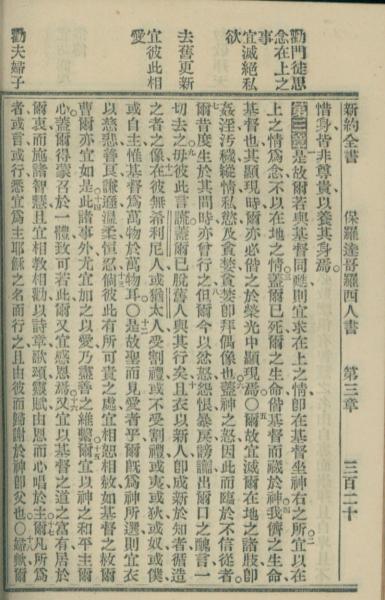 新約全書　保羅達哥羅西人書　第三章　三百二十
惜身皆非尊貴以養其身焉
第三章是故爾若與基督同甦則宜求在上之情卽在基督坐神右之所宜以在
上之情爲念不以在地之情蓋爾已死爾之生命偕基督而藏於神我儕之生命
基督也其顯現時爾亦必偕之於榮光中顯現焉〇爾故宜滅爾在地之諸肢卽
姦淫汚穢縱情私慾及貪婪貪婪卽拜偶像也蓋神之怒因此而臨於不信從者
爾昔度生於其間時亦曾行之但爾今以忿怨恨暴戾謗讟出爾口之醜言一
切去之毋彼此言謊蓋爾已脫舊人與其行矣且衣以新人卽成新於知者循造
之者之像在彼無希利尼人或猶太人受割禮或不受割禮或夷或狄或奴或僕
或自主者惟基督爲萬物於萬物耳〇是故聖而見愛者乎爾旣爲神所選則宜衣
以慈悲善良謙遜溫柔恒忍倘彼此有所可責之處宜相恕相赦如基督之赦爾
曹爾亦宜如是此諸事外尤宜加之以愛乃盡善之維繫爾宜以神之和平主爾
心蓋爾得蒙召於一體致可若此爾又宜感恩焉又宜以基督之道之富有居於
爾衷而施諸智慧且宜相敎相勸以詩章歌頌靈賦由恩而心唱於主爾凡所爲
者或言或行悉宜爲主耶穌之名而行之且由彼而歸謝於神卽父也〇婦歟爾
勸門徒思
念在上之
事
宜滅絕私
欲
去舊更新
宜彼此相
愛
勸夫婦子